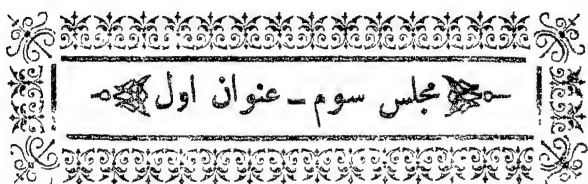 مجلس سوم ــ عنوان اول